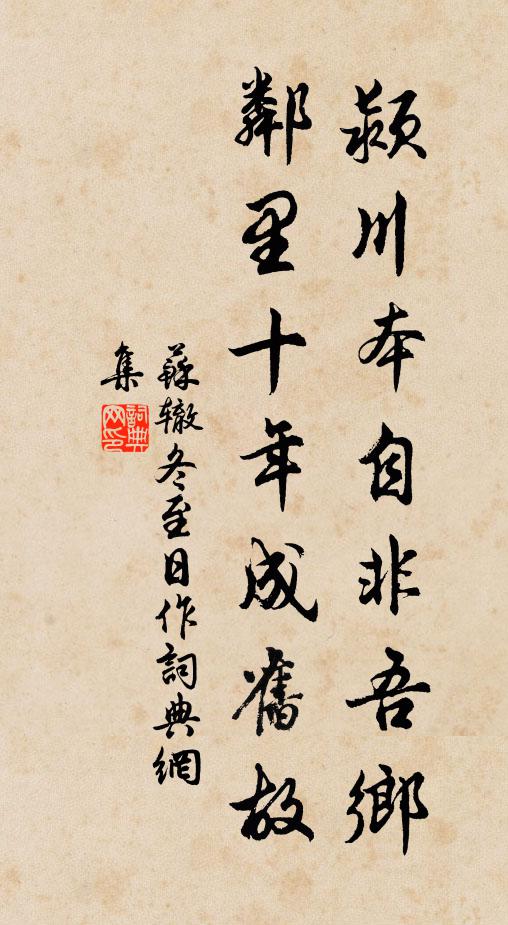 潁川本自非吾鄉
鄰里十年成舊故
蘇辙冬至日作詞典網
集
詞典网印